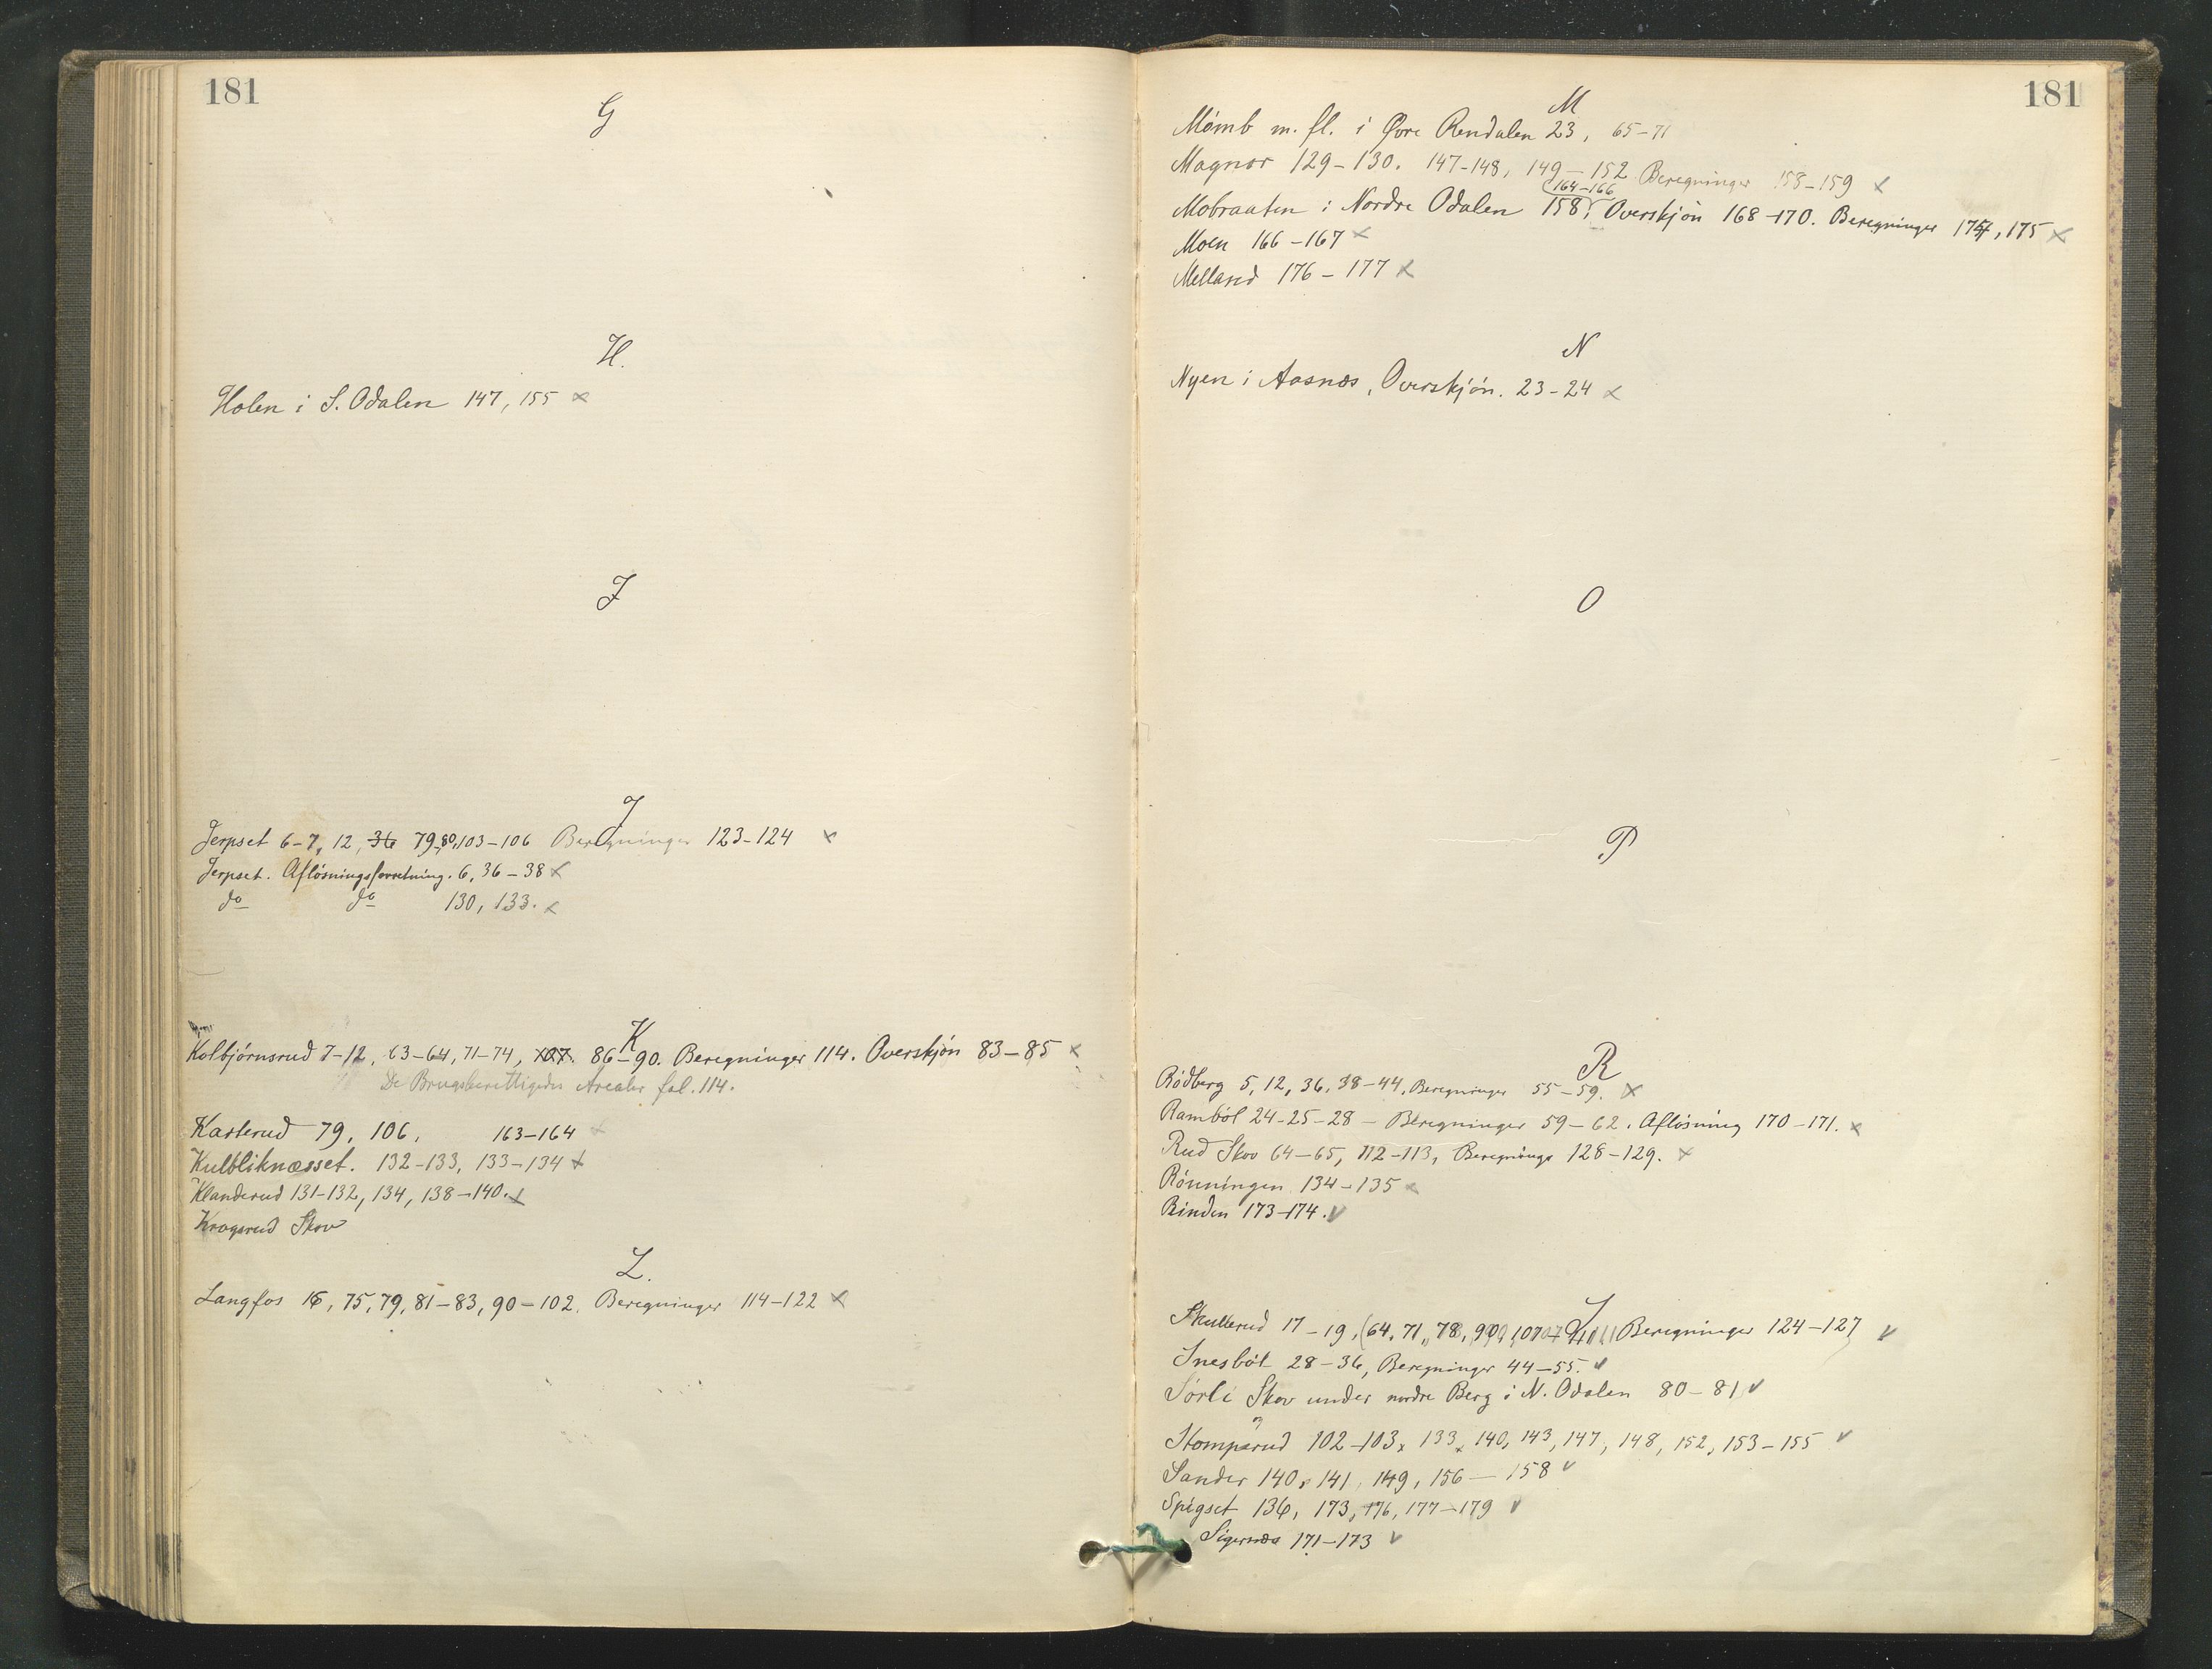 181
G
H.
Holen i S. Odalen 147, 155 ×
I
J
Jerpset 6-7, 12, 36 79,80,103-106 Beregninger 123-124 ×
Jerpset. Afløsningsforretning. 6, 36-38 ×
do do 130, 133. ×
K
Kolbjörnsrud 7-12, 63-64, 71-74, 107. 86-90. Beregninger 114. Overskjön 83-85 ×
De Brugsberettigedes Arealer fol. 114.
Kasterud 79, 106, 163-164 ×
Kulbliknæsset. 132-133, 133-134 ×
Klanderud 131-132, 134, 138-140. ×
Krogsrud Skov
L.
Langfos 16, 75, 79, 81-83, 90-102. Beregninger 114-122 ×
181
M
Mömb m. fl. i Øvre Rendalen 23, 65-71
Magnor 129-130. 147-148, 149-152 Beregninger 158-159 ×
164-166
Mobraaten i Nordre Odalen 158, Overskjön 168-170. Beregninger 174, 175 ×
Moen 166-167 ×
Mellaned 176-177 ×
N
Nyen i Aasnæs, Overskjön. 23-24 ×
O
P
R
Rödberg 5, 12, 36, 38-44, Beregninger 55-59. ×
Ramböl 24-25-28 - Beregninger 59-62. Aflösning 170-171. ×
Rud Skov 64-65, 112-113, Beregnings 128-129. ×
Rönningen 134-135 ×
Rinden 173-174. ✓
S
Skullerud 17-19, (64, 71, 78, 90, 107- Beregninger 124-127 ✓
Snesböl 28-36, Beregninger 44-55. ✓
Sörli Skov under nordre Berg i N. Odalen 80-81 ✓
Stomperud 102-103, 133, 140, 143, 147, 148, 152, 153-155 ✓
Sander 140, 141, 149, 156-158 ✓
Spigset 136, 173, 176, 177-179 ✓
Sigernæs 171-173 ✓